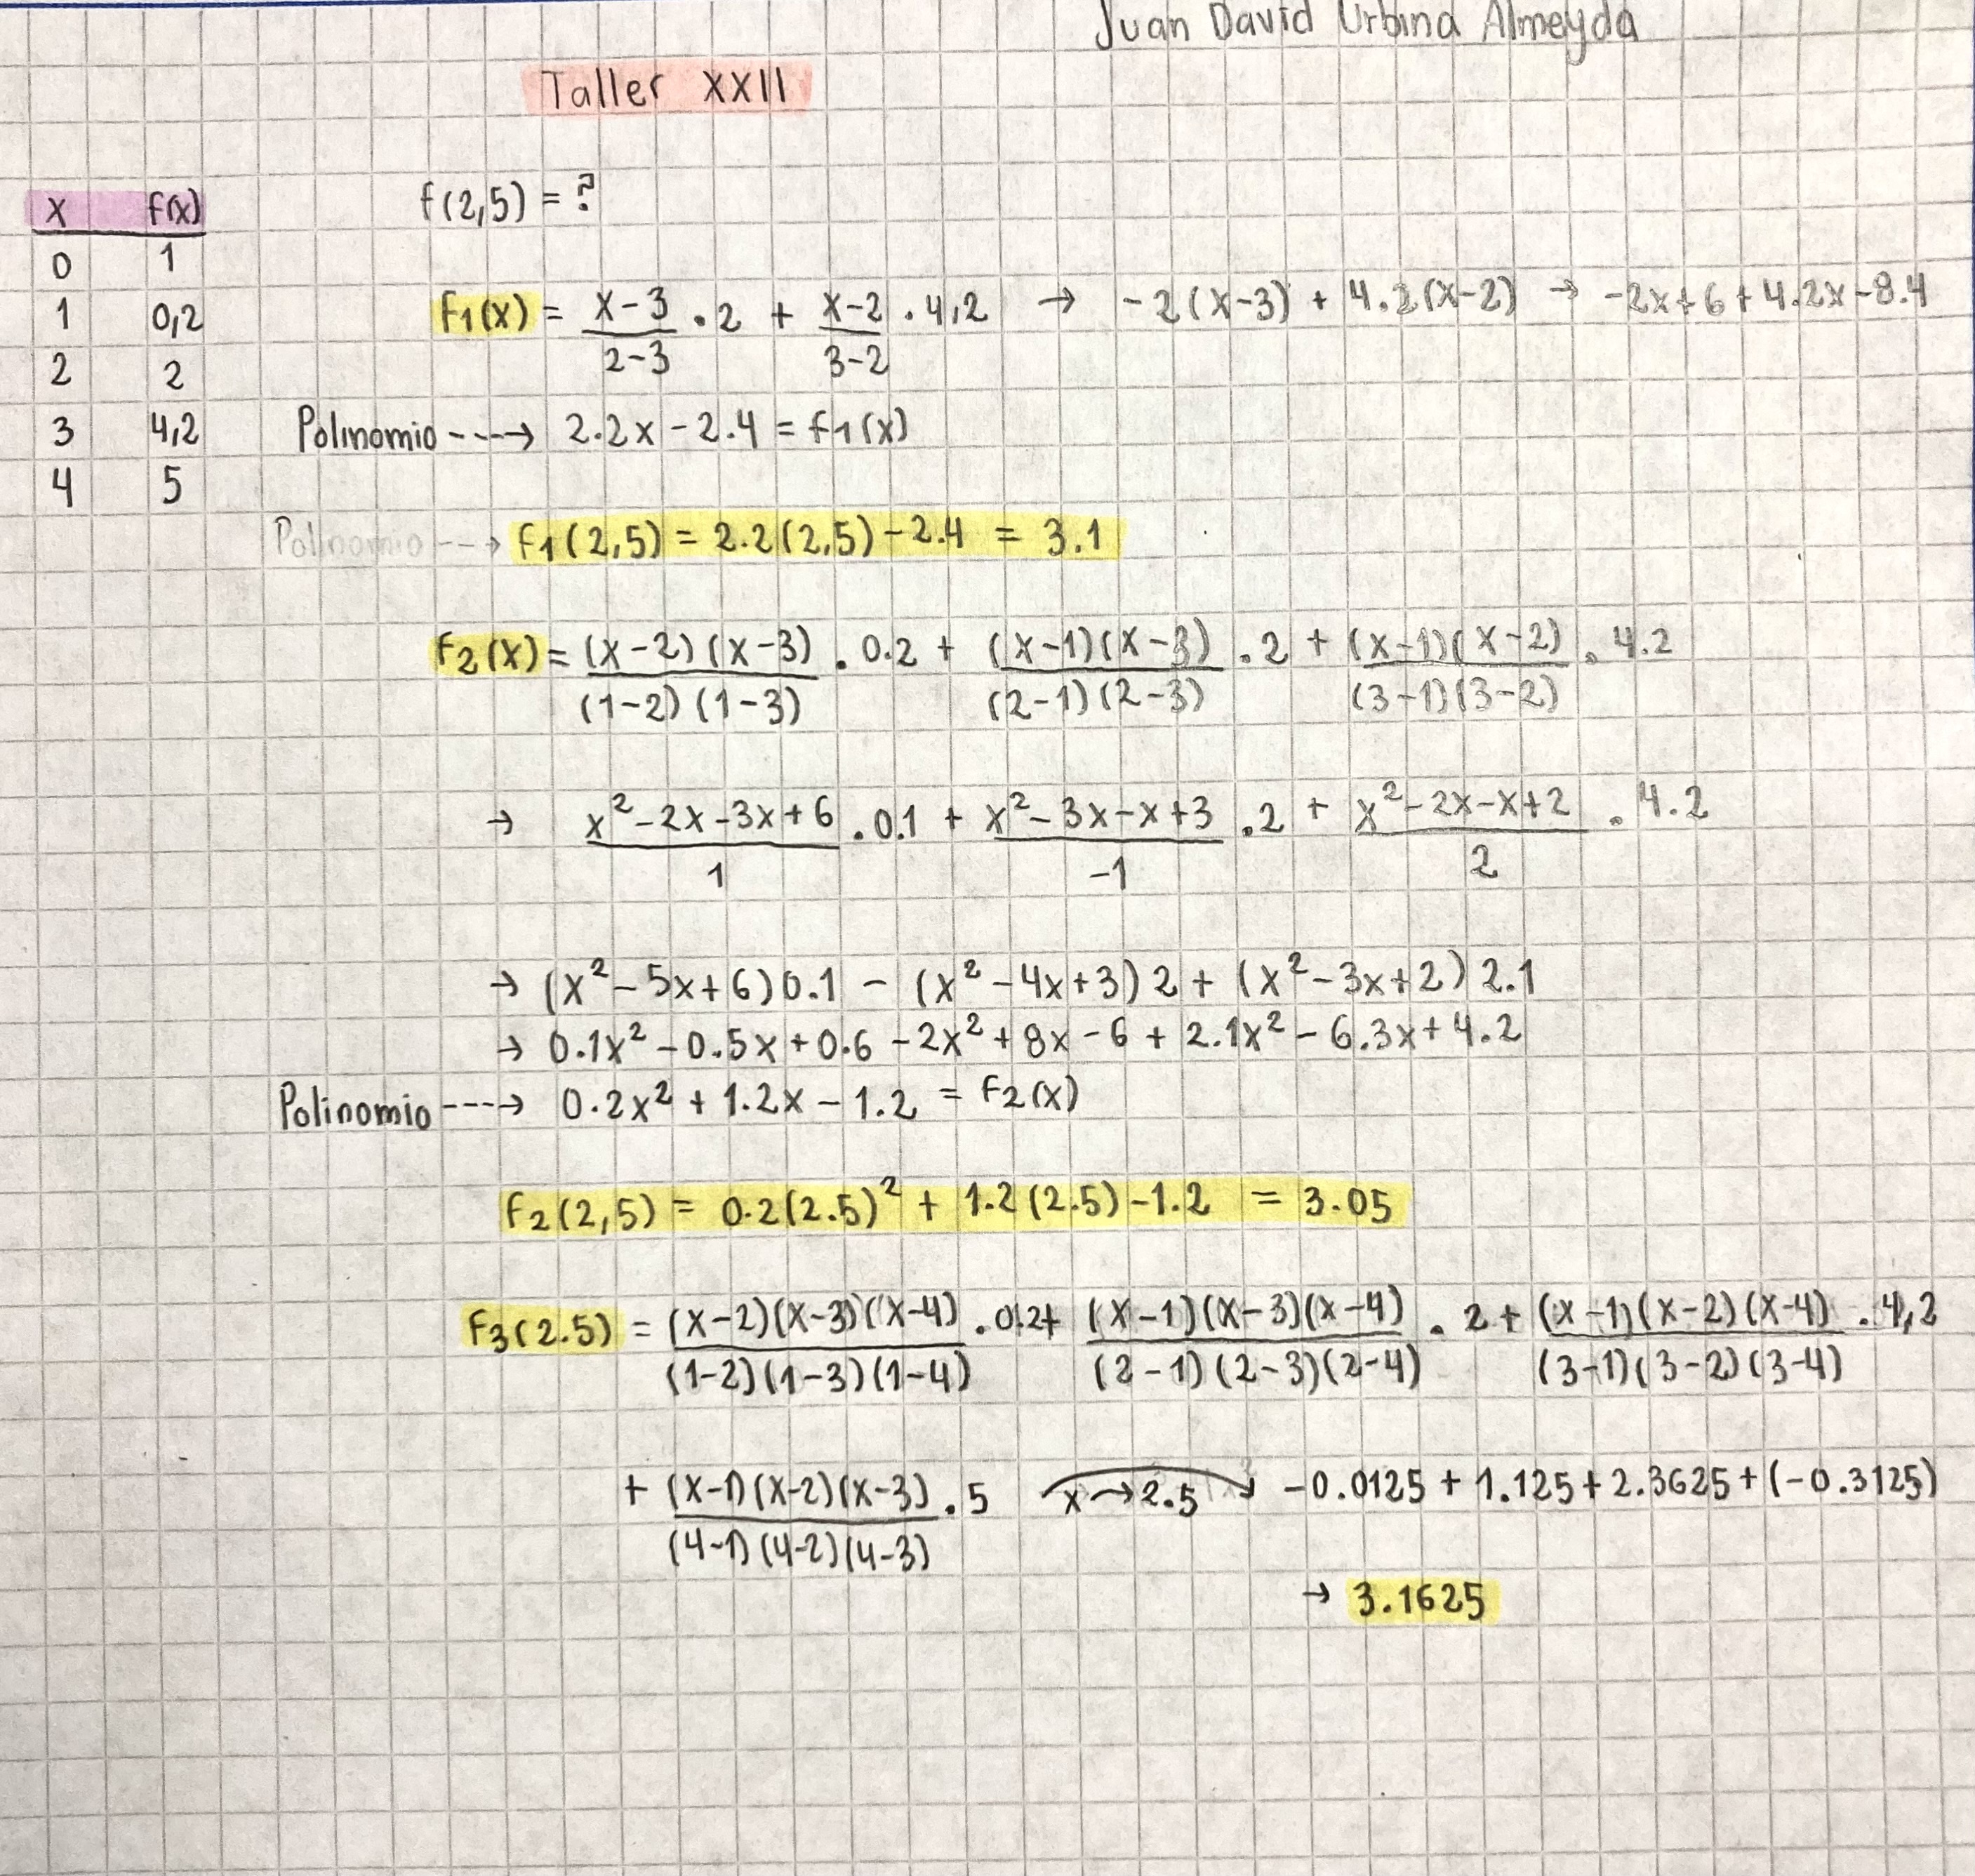 Juan David Urbina Almeyda
Taller XXII
x f(x)
0 1
1 0,2
2 2
3 4,2
4 5
f(2,5) = ?
f1(x) = (x-3)/(2-3) · 2 + (x-2)/(3-2) · 4,2 → -2(x-3) + 4.2(x-2) → -2x+6+4.2x-8.4
Polinomio ----> 2.2x - 2.4 = f1(x)
Polinomio --> f1(2,5) = 2.2(2,5) - 2.4 = 3.1
f2(x) = (x-2)(x-3)/(1-2)(1-3) . 0.2 + (x-1)(x-3)/(2-1)(2-3) . 2 + (x-1)(x-2)/(3-1)(3-2) . 4.2
→ x² - 2x - 3x + 6/1 . 0.1 + x² - 3x - x + 3/-1 . 2 + x² - 2x - x + 2/2 . 4.2
→ (x² - 5x + 6) 0.1 - (x² - 4x + 3) 2 + (x² - 3x + 2) 2.1
→ 0.1x² - 0.5x + 0.6 - 2x² + 8x - 6 + 2.1x² - 6.3x + 4.2
Polinomio ----> 0.2x² + 1.2x - 1.2 = f2(x)
f2(2,5) = 0.2(2.5)² + 1.2(2.5) - 1.2 = 3.05
f3(2.5) = (x-2)(x-3)(x-4)/(1-2)(1-3)(1-4) . 0.2 + (x-1)(x-3)(x-4)/(2-1)(2-3)(2-4) . 2 + (x-1)(x-2)(x-4)/(3-1)(3-2)(3-4) . 4,2
+ (x-1)(x-2)(x-3)/(4-1)(4-2)(4-3) . 5 x→2.5 → -0.0125 + 1.125 + 2.3625 + (-0.3125)
→ 3.1625